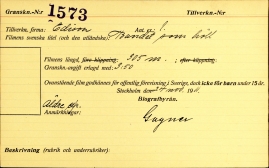 Granskn.-Nr 1573 Tillverkn.-Nr
Tillverkn. firma: Edison
Filmens svenska titel (och den utländska):
Filmens längd, före klippning: 305 m.
Granskn.-avgift erlagd med: 3:50
Ovanstående film godkännes för offentlig förevisning i Sverige, dock icke för barn under 15 år.
Stockholm den 27 nov. 191
Biografbyrån.
Äldre ex.
Anmärkningar:
Beskrivning (rubrik och underrubriker):